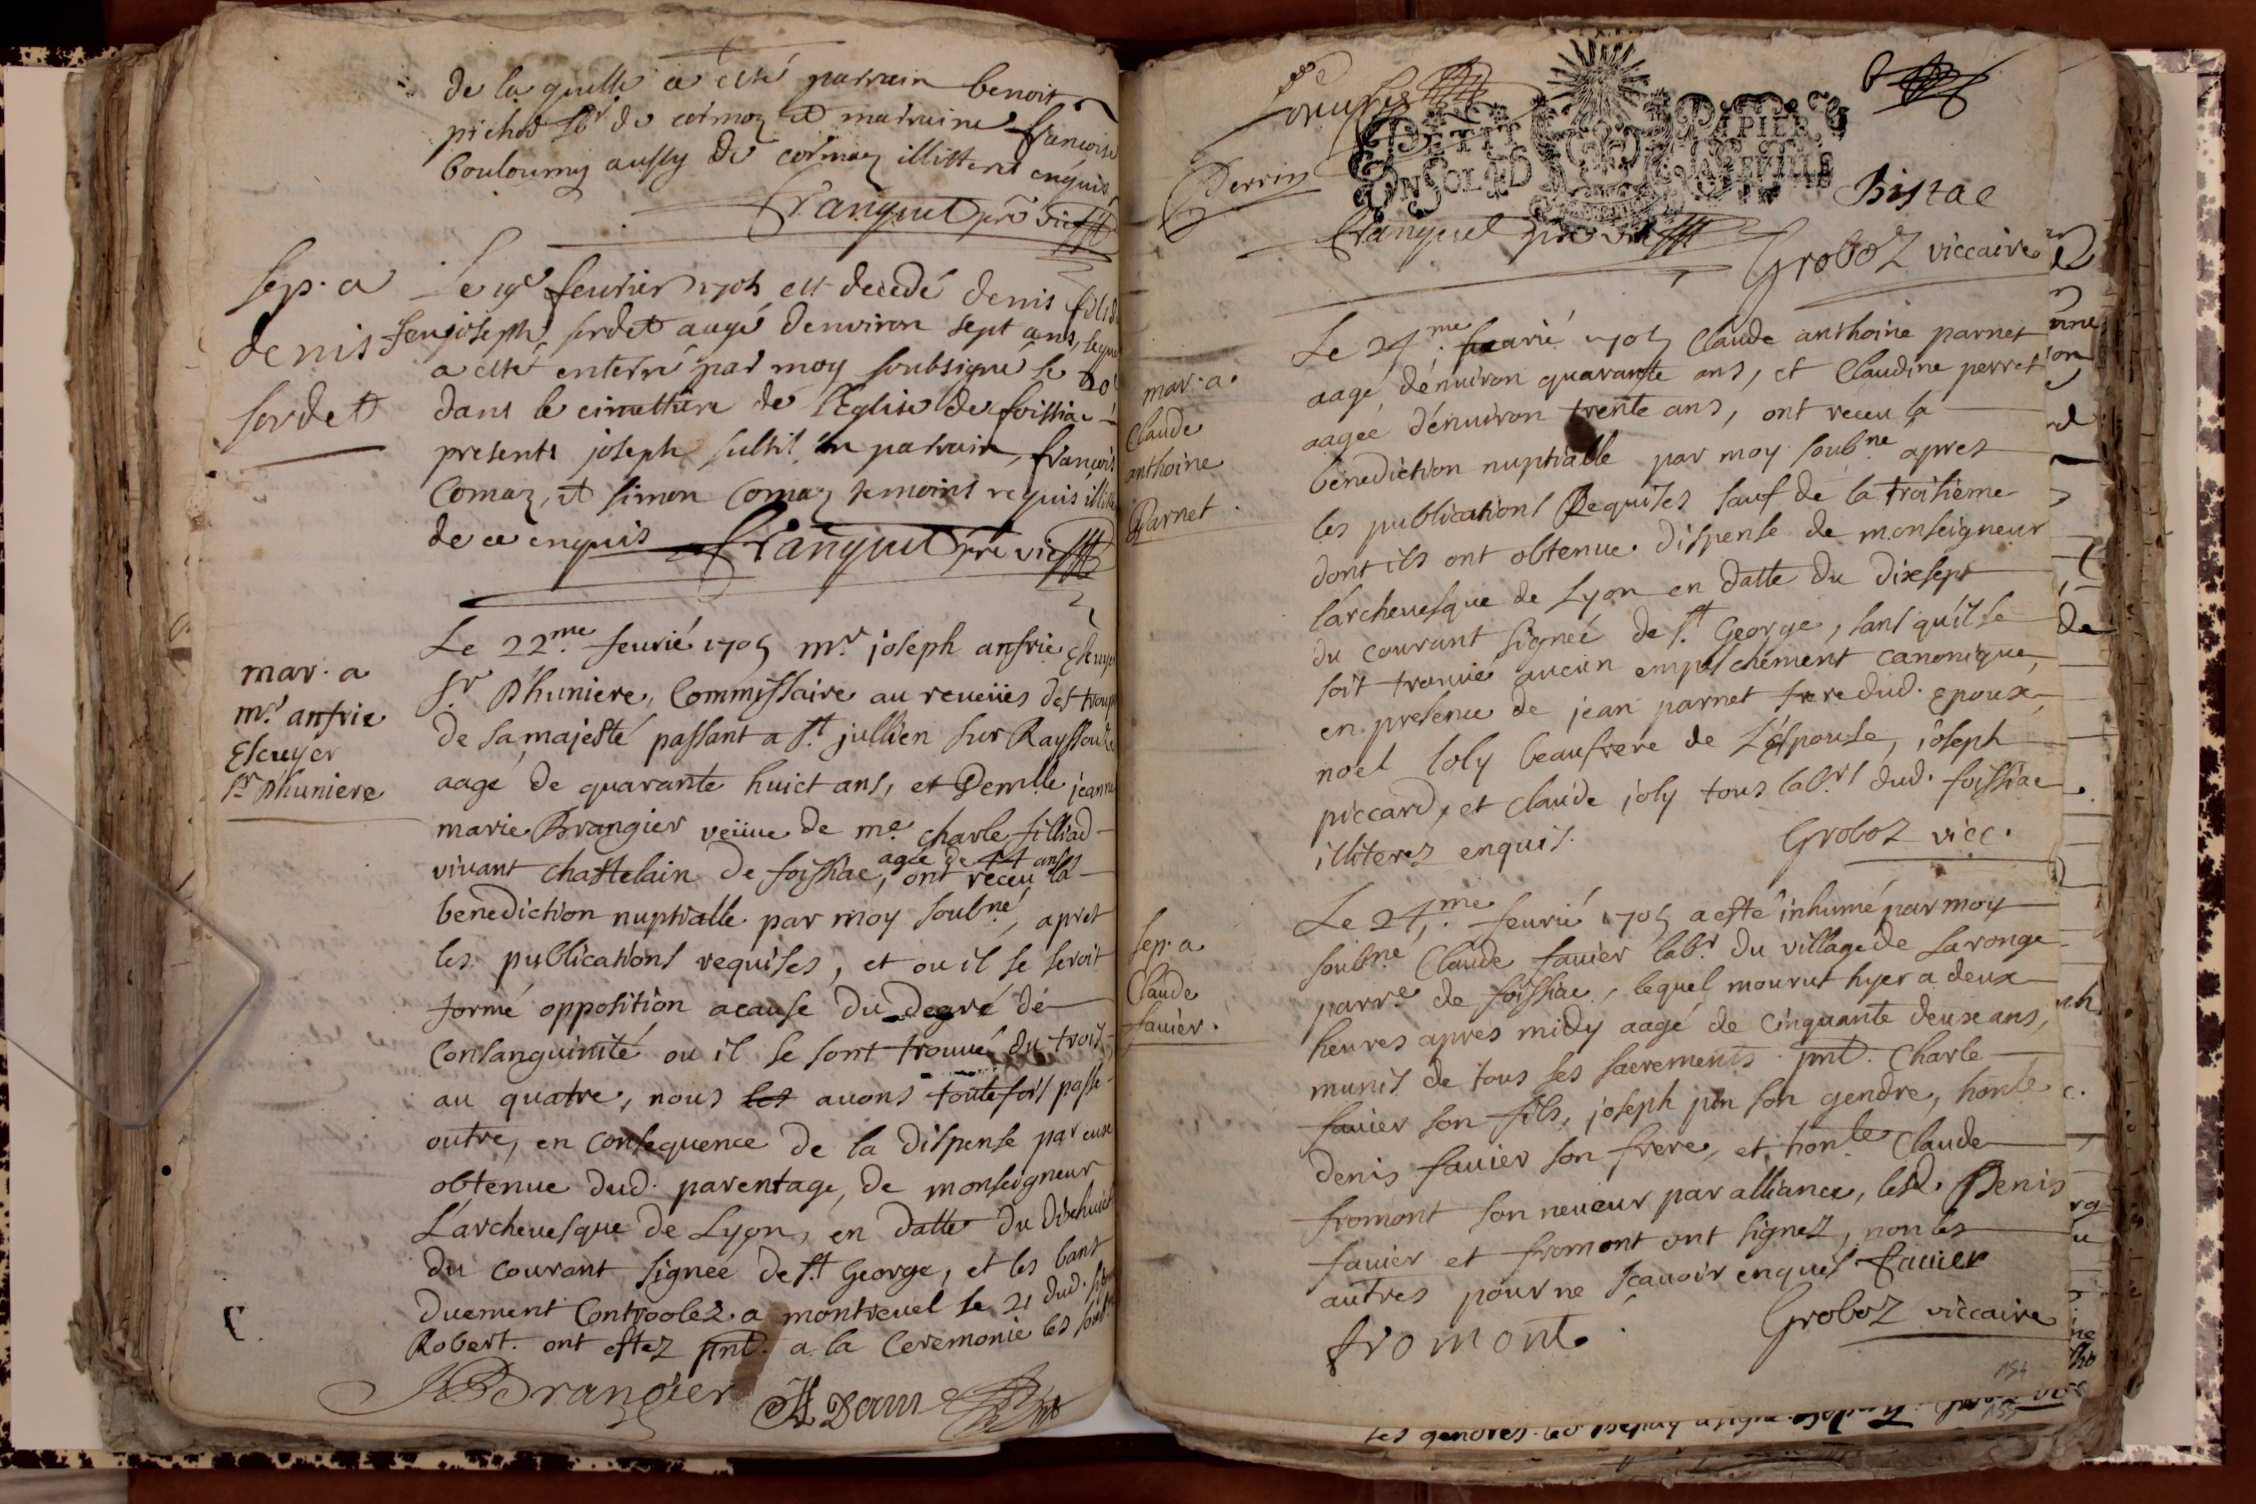 de laquelle a esté parrain benoit
pichod de cormoz et marraine francoise
bouloumy aussy de cormoz illitteres enquis
franquet pre vic
sep. a
denis
sordet
Le 19e feurier 1705 est decedé denis fils de
feu joseph sordet aagé denviron sept ans, lequel
a esté enterré par moy soubsigné le 20e
dans le cimettiere de l'Eglise de foissiac
presents joseph son parrain, francois
Comaz, et simon Comaz temoins requis illitteres
de ce enquis franquet pre vic
mar. a
mr. anfrie
Escuyer
Sr. Dhuniere
Le 22.me feurié 1705 mr. joseph anfrie Escuyer
Sr. D'huniere, Commissaire au reueües des troupes
de sa majesté passant a St. jullien sur Rayssouze
aagé de quarante huict ans, et Demlle jeanne
marie Brangier veüue de me. charle filliad
vivant chastelain de foissiac, agée de 44 ans ont receu la
benediction nuptialle par moy soubné, apres
les publications requises, et ou il se seroit
formé opposition acause du degré de
Consanguinité ou il se sont trouué du trois
au quatre, nous les auons toutefois passé
outre, en consequence de la dispense par eux
obtenue dud. parentage, de monseigneur
L'archeuesque de Lyon, en datte du dixhuict
du courant signee de St. George, et les bans
duement Controolez a montreuel le 21 dud. signé
Robert. ont estez pnt. a la Ceremonie les soub.
JBrangier Adam
PETIT PAPIER
UN SOL LA FEUILLE
Perrin
Bistac
franquet pre vic
Groboz viccaire
mar. a.
Claude
anthoine
Parnet.
Le 24.me feurié 1705 Claude anthoine parnet
aagé d'énuiron quarante ans, et Claudine perret
aageé d'énuiron trente ans, ont receu la
bénediction nuptialle par moy soub.ne apres
les publications Requises sauf de la troisieme
dont ils ont obtenue dispense de monseigneur
l'archeuesque de Lyon en datte du dixsept
du courant signeé de St. George, sans qu'il se
soit trouué aucun empeschement canonique,
en presence de jean parnet frere dud. Epoux,
noel Joly beaufrere de L'épouse, joseph
piccard, et Claude joly tous lab.rs dud. foissiac
illiterez enquis. Groboz vicc.
sep. a
Claude
fauier.
Le 24.me feurié 1705 a esté inhumé par moy
soubné Claude fauier labr. du village de Laronge
parre de foissiac, lequel mourut hyer a deux
heures apres midy aagé de cinquante deux ans,
munis de tous ses sacrements. pnt. Charle
fauier son fils, joseph son gendre, honle
denis fauier son frere, et honle Claude
fromont son neueur par alliance, lesd. Denis
fauier et fromont ont signez, non les
autres pour ne scauoir enquis fauier
fromont. Groboz viccaire